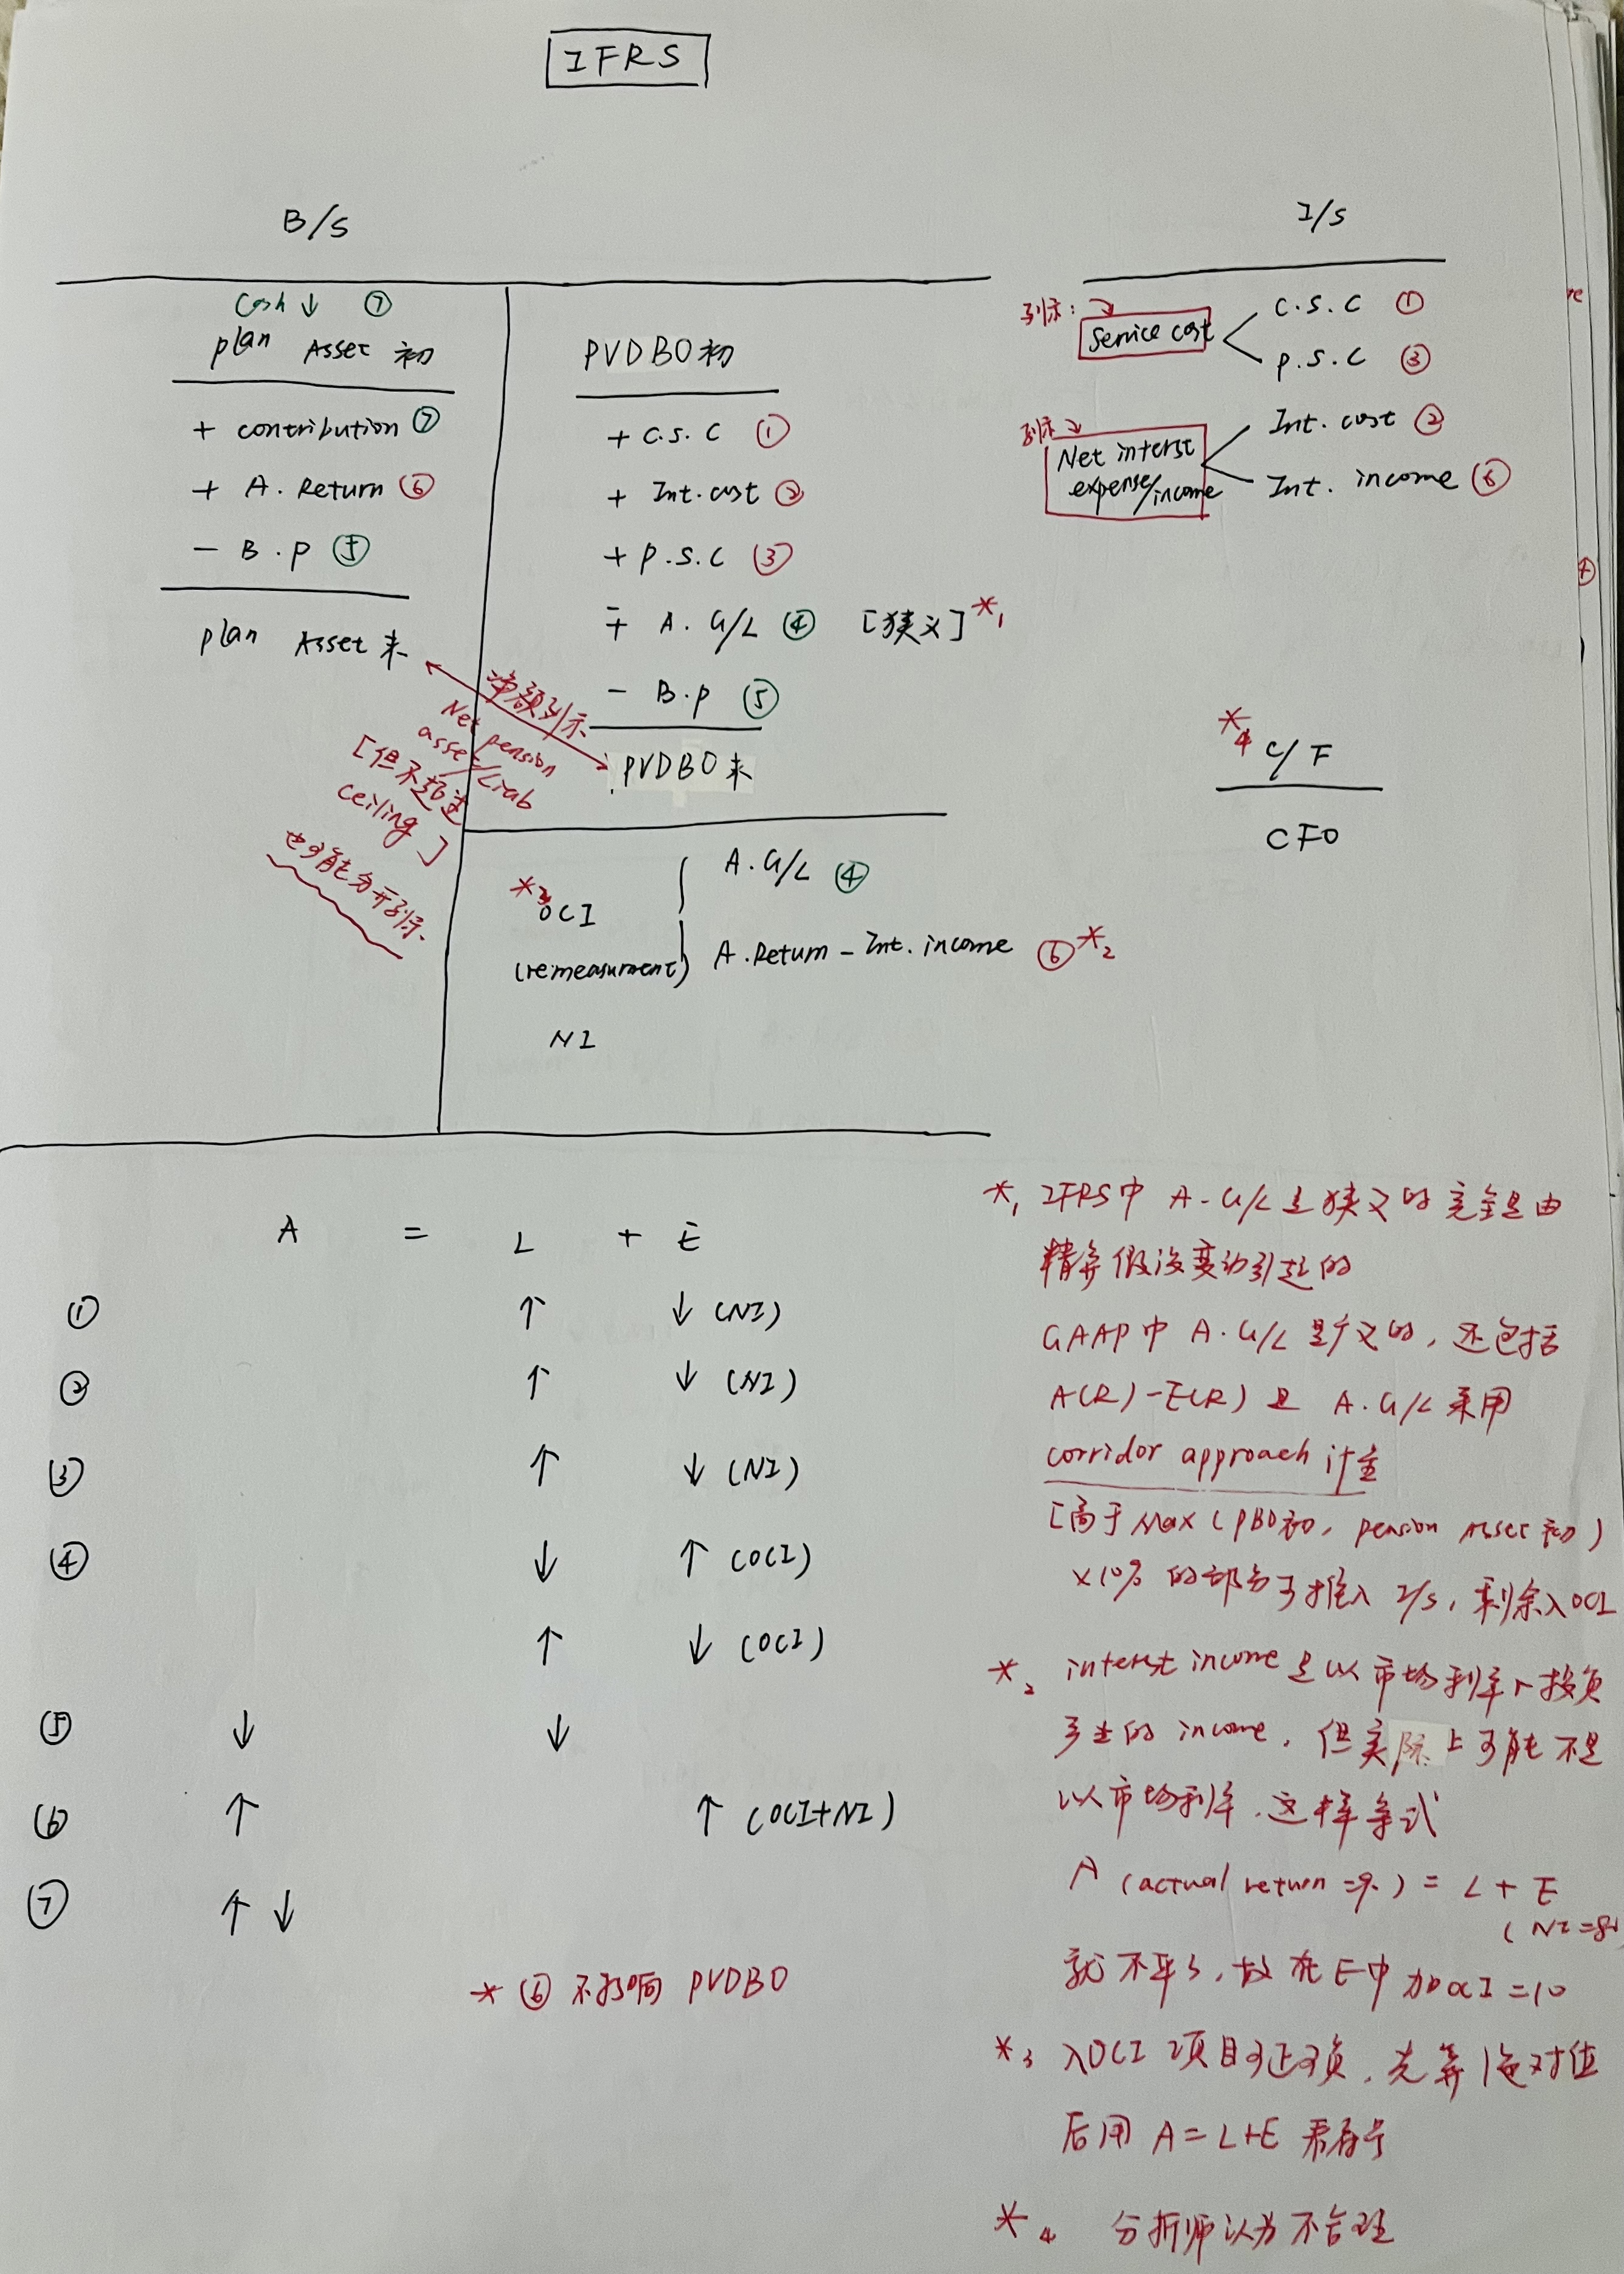 IFRS
B/S
Cash ↓ ⑦
plan Asset 初
+ contribution ⑦
+ A. Return ⑥
- B.P ⑤
plan Asset 末
PVDBO初
+ C.S.C ①
+ Int. cost ②
+ P.S.C ③
∓ A. G/L ④ [狭义] *1
- B.P ⑤
PVDBO末
净额列示
Net pension
asset/Liab
[但不超过
ceiling]
也可能分开列示
*3 OCI
(remeasurment)
A.G/L ④
A.Return - Int. income ⑥ *2
NI
I/S
列示:
Service cost
C.S.C ①
P.S.C ③
列示
Net interst
expense/income
Int. cost ②
Int. income ⑥
*4 C/F
CFO
A = L + E
① ↑ ↓ (NI)
② ↑ ↓ (NI)
③ ↑ ↓ (NI)
④ ↓ ↑ (OCI)
↑ ↓ (OCI)
⑤ ↓ ↓
⑥ ↑ ↑ (OCI+NI)
⑦ ↑ ↓
* ⑥ 不影响 PVDBO
*1 IFRS中 A.G/L是狭义的完全是由
精算假设变动引起的
GAAP中 A.G/L 是广义的, 还包括
A(R)-E(R) 且 A.G/L采用
corridor approach 计量
[高于Max(PBO初, pension Asset初)
×10% 的部分可摊入 I/S, 剩余入OCI
*2 interest income 是以市场利率r投资
产生的 income, 但实际上可能不是
以市场利率, 这样等式
A (actual return = 9.) = L + E
(NI=
就不平了, 故在E中加OCI=10
*3 入OCI 2项目可正可负, 先算绝对值
后用 A=L+E 看符号
*4 分析师认为不合理